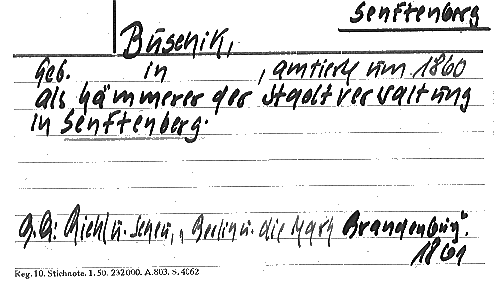 Senftenberg
Buschik,
Geb. in , amtierte um 1860
als Kämmerer der Stadtverwaltung
in Senftenberg.
Q.A: Riehl u. Scheu, „Berlin u. die Mark Brandenburg".
1861
Reg. 10. Stichnote. 1. 50. 232000. A. 803. S. 4062